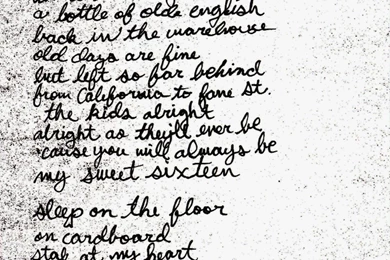 a bottle of olde english
back in the warehouse
old days are fine
but left so far behind
from California to fame st.
the kids alright
alright as they'll ever be
'cause you will always be
my sweet sixteen
sleep on the floor
on cardboard
stab at my heart